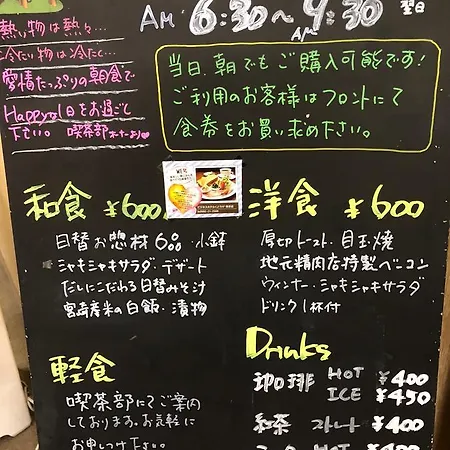 AM 6:30～9:30
AM
翌日
熱い物は熱々…
冷たい物は冷たく…
愛情たっぷりの朝食で
Happyな1日をお過ごし
下さい。喫茶部
当日、朝でもご購入可能です!
ご利用のお客様はフロントにて
食券をお買い求め下さい。
和食 ¥600
日替お惣材6〜8・小鉢
シャキシャキサラダ・デザート
だしにこだわる日替みそ汁
宮崎産米の白飯・漬物
洋食 ¥600
厚切トースト・目玉焼
地元精肉店特製ベーコン
ウィンナー・シャキシャキサラダ
ドリンク1杯付
軽食
喫茶部にてご案内
しております。お気軽に
お申しつけ下さい。
Drinks
珈琲 HOT ¥400
ICE ¥450
紅茶 ストレート ¥400
HOT